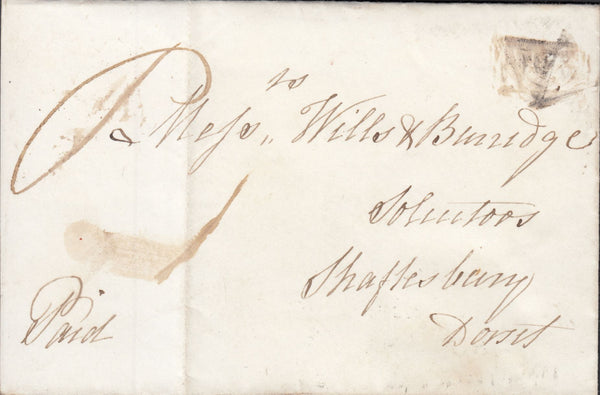 Mess,, rs Wills & Burridge
Solicitors
Shaftesbury
Dorset
Paid